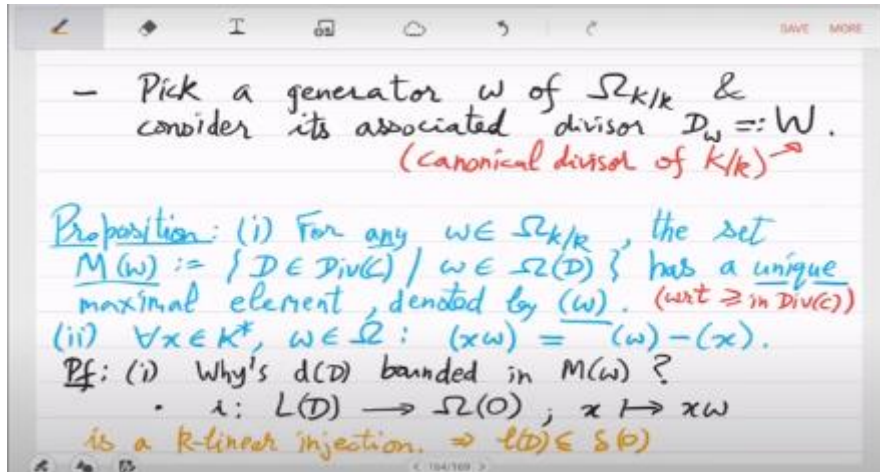 SAVE MORE
– Pick a generator ω of Ω_{K/k} &
consider its associated divisor D_ω =: W.
(canonical divisor of K/k)
Proposition: (i) For any ω ∈ Ω_{K/k}, the set
M(ω) := { D ∈ Div(C) / ω ∈ Ω(D) } has a unique
maximal element, denoted by (ω). (wrt ≥ in Div(C))
(ii) ∀x ∈ K*, ω ∈ Ω : (xω) = (ω) – (x).
Pf: (i) Why's d(D) bounded in M(ω) ?
· i: L(D) ⟶ Ω(0) ; x ↦ xω
is a k-linear injection. ⇒ l(D) ≤ δ(0)
< 164/169 >